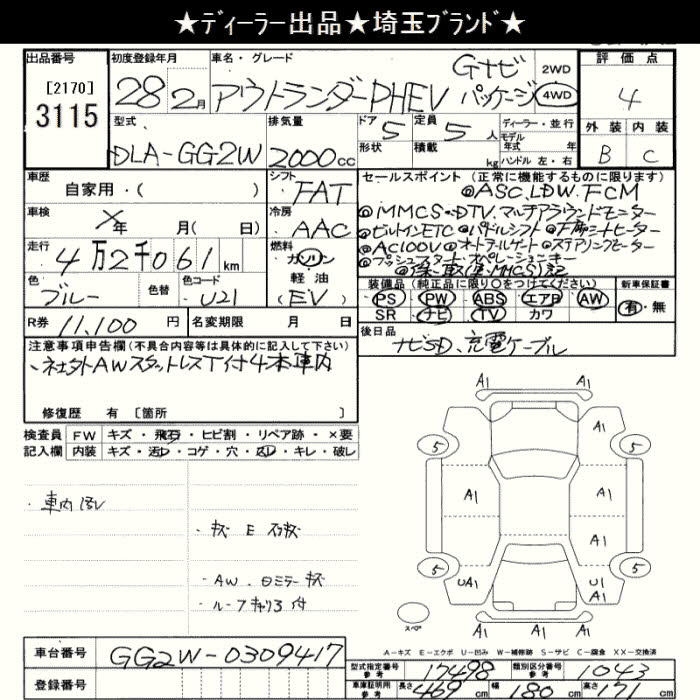 ★ディーラー出品★埼玉ブランド★
出品番号 初度登録年月 車名・グレード 評価点
[2170] 3115
28年 2月 アウトランダーPHEV Gナビパッケージ 2WD 4WD
4
型式 排気量 ドア 5 定員 5人 ディーラー・並行
モデル年式 年
外装 内装
DLA-GG2W 2000cc 形状 積載 kg ハンドル 左・右 B C
車歴 シフト セールスポイント (正常に機能するものに限ります)
自家用・( ) FAT @ASC.LDW.FCM
車検 冷房 @MMCS・DTV.マルチアラウンドモニター
×年 月( 日) AAC @ビルトインETC @パドルシフト @F両シートヒーター
走行 燃料 @AC100V @オートテールゲート @ステアリングヒーター
4万2千061km ガソリン @プッシュスタート・オペレーションキー
軽油 @保・取(車・MMCS)記
色 色替 色コード (EV) 装備品 (純正品に限り○をつけてください) 新車保証書
ブルー U21 PS PW ABS エアB AW 有・無
SR ナビ TV カワ
R券 11,100円 名変期限 月 日 後日品
ナビSD、充電ケーブル
注意事項申告欄(不具合内容等は具体的に記入して下さい)
・社外AWスタットレスT付4本車内
修復歴 有 [箇所 ]
検査員 FW キズ・飛石・ヒビ割・リペア跡・×要
記入欄 内装 キズ・汚レ・コゲ・穴・凹レ・キレ・破レ
・車内汚レ
・キズ E スリキズ
・AW.ロミラーキズ
・ルーフキャリア付
A1 A1
A1
5 5
A1 A1
A1
5 5
UA1 U1 A1
A1 A1
スペア
A-キズ E-エクボ U-凹み W-補修跡 S-サビ C-腐食 XX-交換済
車台番号 GG2W-0309417
型式指定番号 参考 17498 類別区分番号 参考 1043
登録番号
車庫証明用 参考 長さ 469cm 幅 180cm 高さ 171cm